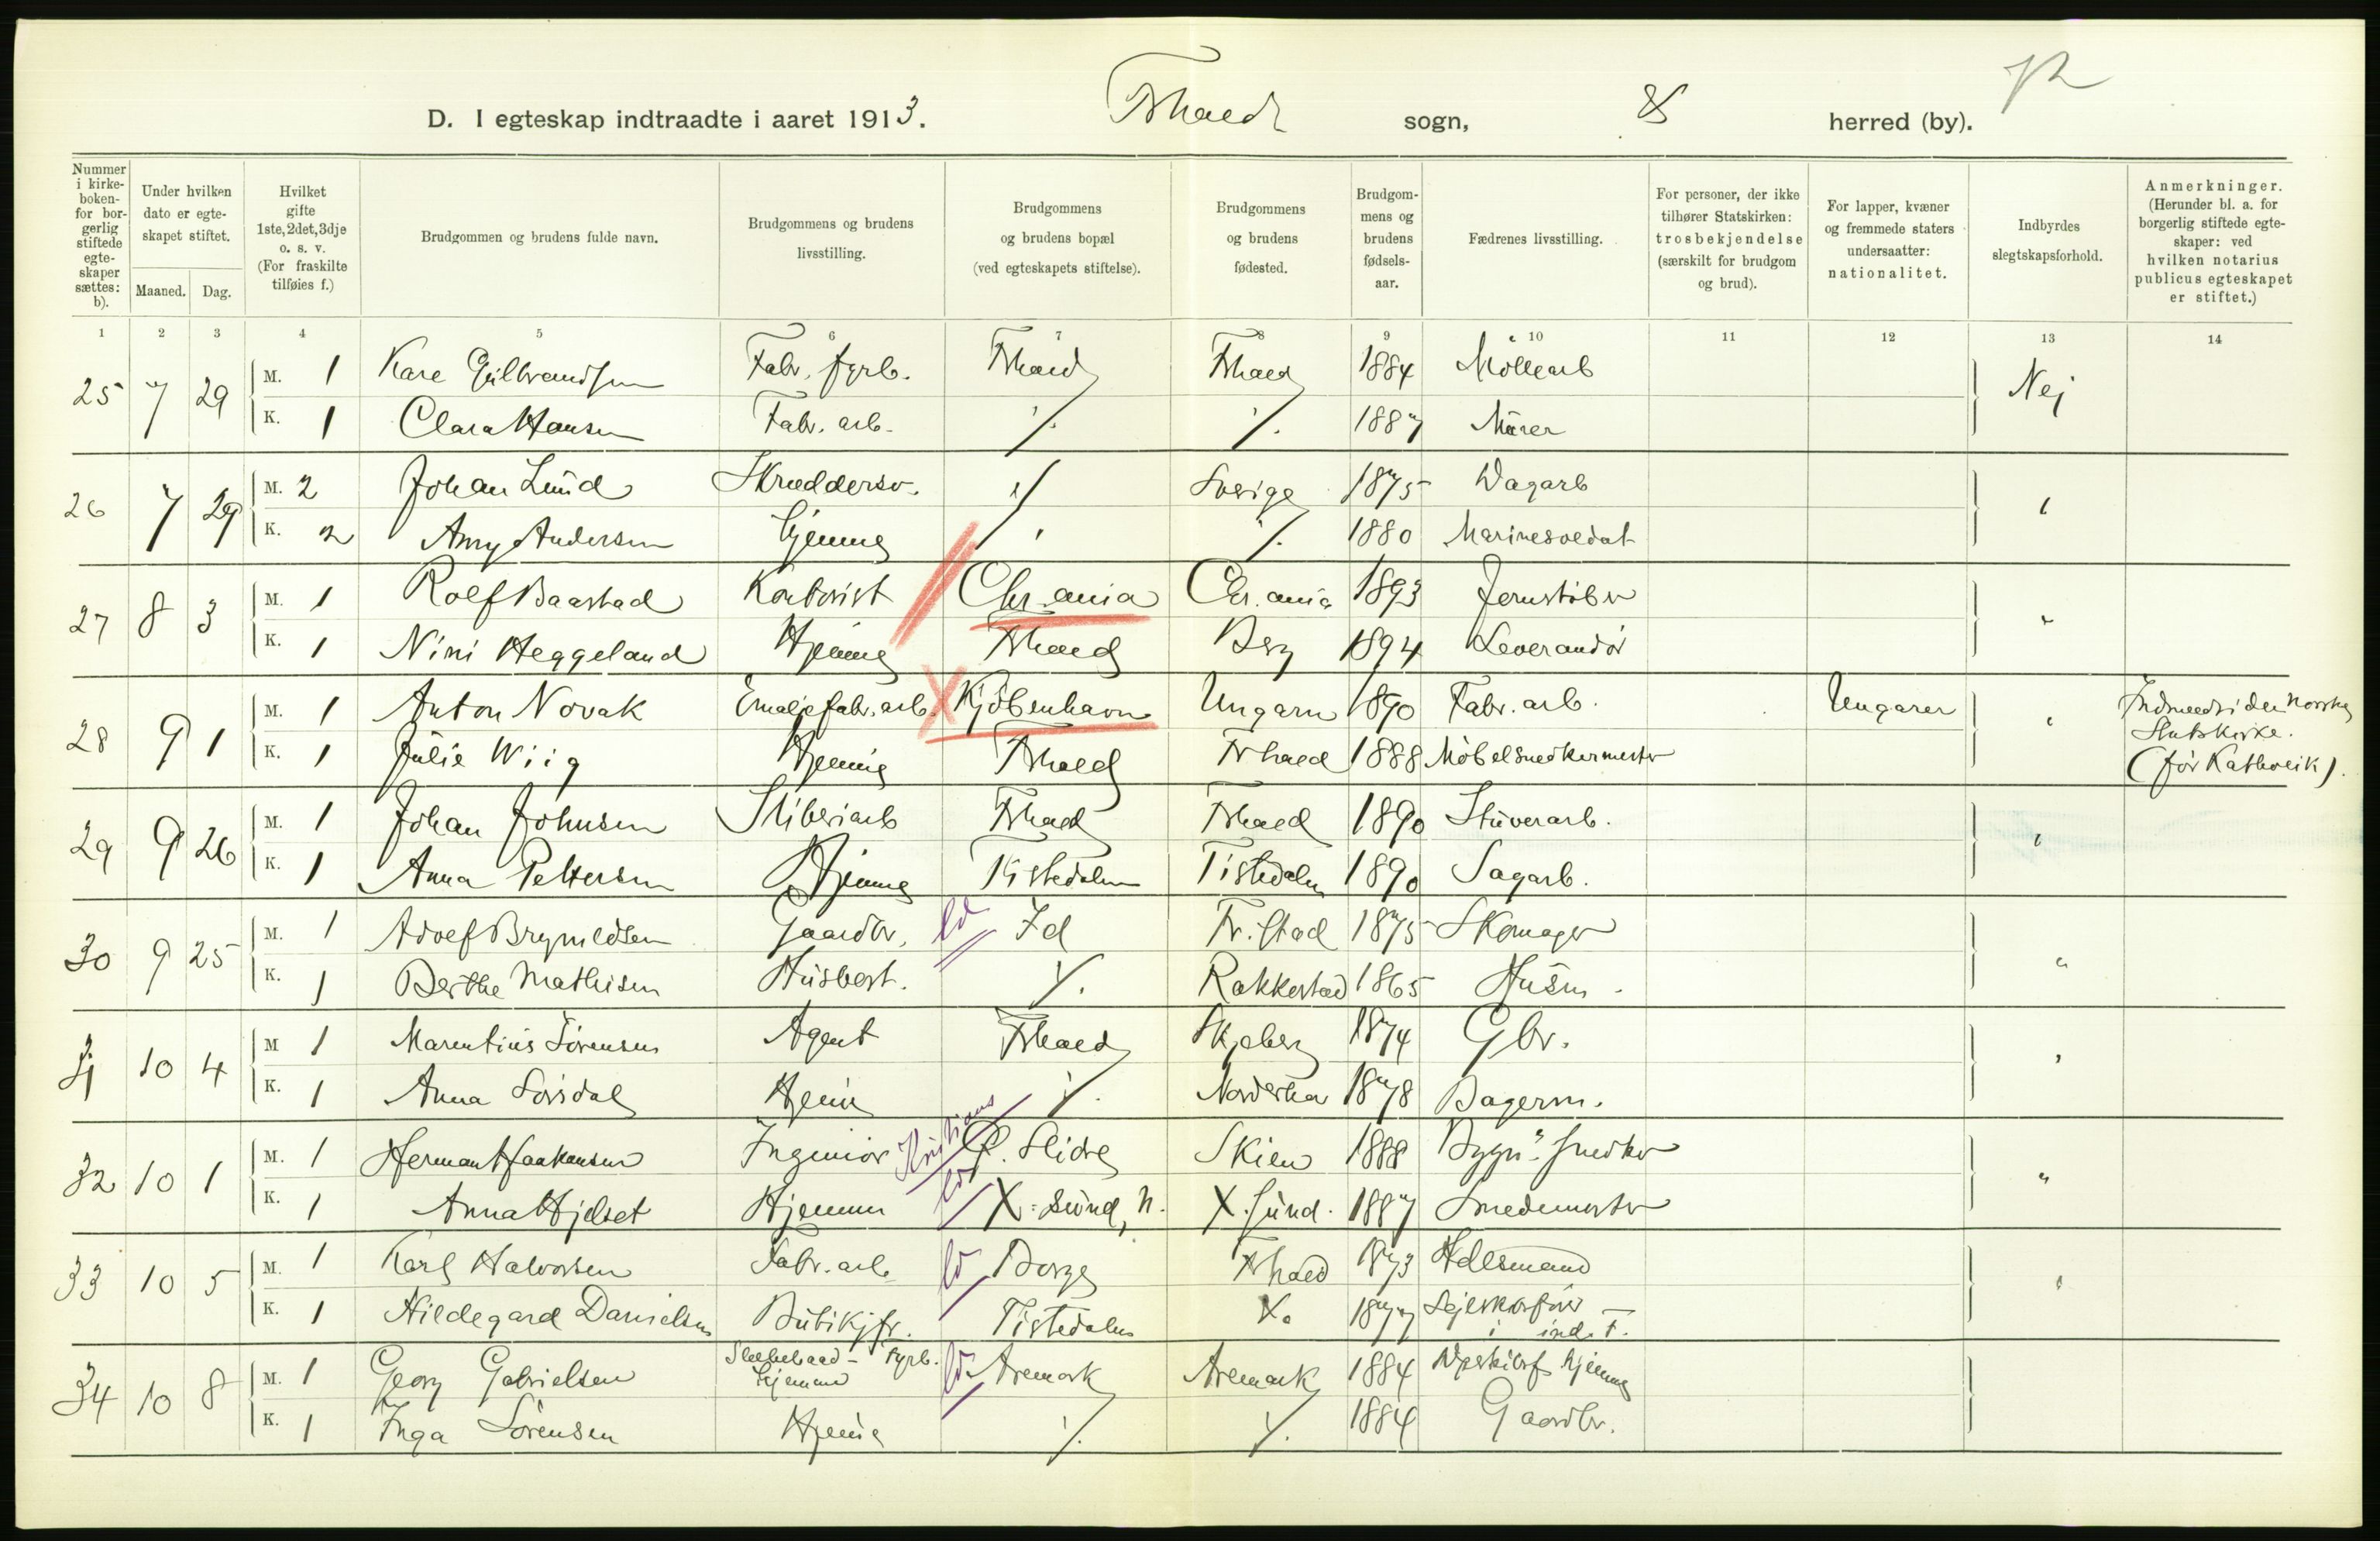 D. I egteskap indtraadte i aaret 1913. Frhald sogn, herred (by).
Nummer i kirkeboken for borgerlig stiftede egteskaper sættes: b).
Under hvilken dato er egteskapet stiftet.
Maaned. Dag.
Hvilket gifte 1ste, 2det, 3dje o. s. v. (For fraskilte tilføies f.)
Brudgommen og brudens fulde navn.
Brudgommens og brudens livsstilling.
Brudgommens og brudens bopæl (ved egteskapets stiftelse).
Brudgommens og brudens fødested.
Brudgommens og brudens fødselsaar.
Fædrenes livsstilling.
For personer, der ikke tilhører Statskirken: trosbekjendelse (særskilt for brudgom og brud).
For lapper, kvæner og fremmede staters undersaatter: nationalitet.
Indbyrdes slegtskapsforhold.
Anmerkninger. (Herunder bl. a. for borgerlig stiftede egteskaper: ved hvilken notarius publicus egteskapet er stiftet.)
1 2 3 4 5 6 7 8 9 10 11 12 13 14
25 7 29 M. 1 Kare Gulbrandsen Fabr. fyrb. Frhald Frhald 1884 Möllearb Nej
K. 1 Clara Hansen Fabr. arb. ⁒ ⁒ 1887 Murer
26 7 29 M. 2 Johan Lund Skræddersv. ⁒ Sverige 1875 Dagarb "
K. 2 Amy Andersen Hjemme ⁒ ⁒ 1880 Marinesoldat
27 8 3 M. 1 Rolf Baastad Kontorist Chr.ania Chr.ania 1893 Jernstöber "
K. 1 Nini Heggeland Hjemme Frhald Berg 1894 Leverandör
28 9 1 M. 1 Anton Novak Emaljefabr. arb. X Kjöbenhavn Ungarn 1890 Fabr. arb. Ungarer " Indmeldt i den norske Statskirke.
K. 1 Julie Wiig Hjemme Frhald Frhald 1888 Möbelsnedkermester (för Katholik).
29 9 26 M. 1 Johan Johnsen Sliberiarb Frhald Frhald 1890 Stuverarb. "
K. 1 Anna Pettersen Hjemme Tistedalen Tistedalen 1890 Sagarb.
30 9 25 M. 1 Adolf Brynildsen Gaardbr. Id Fr.stad 1875 Skomager "
K. 1 Berthe Mathisen Husbest. ⁒ Rakkestad 1865 Husm.
31 10 4 M 1 Marentius Sörensen Agent Frhald Skjeberg 1874 Gbr. "
K. 1 Anna Hjemme ⁒ 1878 Bagerm.
32 10 1 M. 1 Herman Haakonsen Ingeniör Kristians Ö. Slidre Skien 1888 Bygn. snedker "
K. 1 Anna Hjelset Hjemme X.sund, N. X.sund. 1887 Smedemester
33 10 5 M. 1 Karl Halvorsen Fabr. arb Borge Frhald 1873 Hdlsmand "
K. 1 Hildegard Danielsen Butikjfr. Tistedalen 1877 Sejlskibsförer i indr. f.
34 10 8 M. 1 Georg Gabrielsen Slæbebaad-fyrb. Hjemme Aremark Aremark 1884 hjemme
K. 1 Inga Sörensen Hjemme ⁒ ⁒ 1884 Gaardbr.